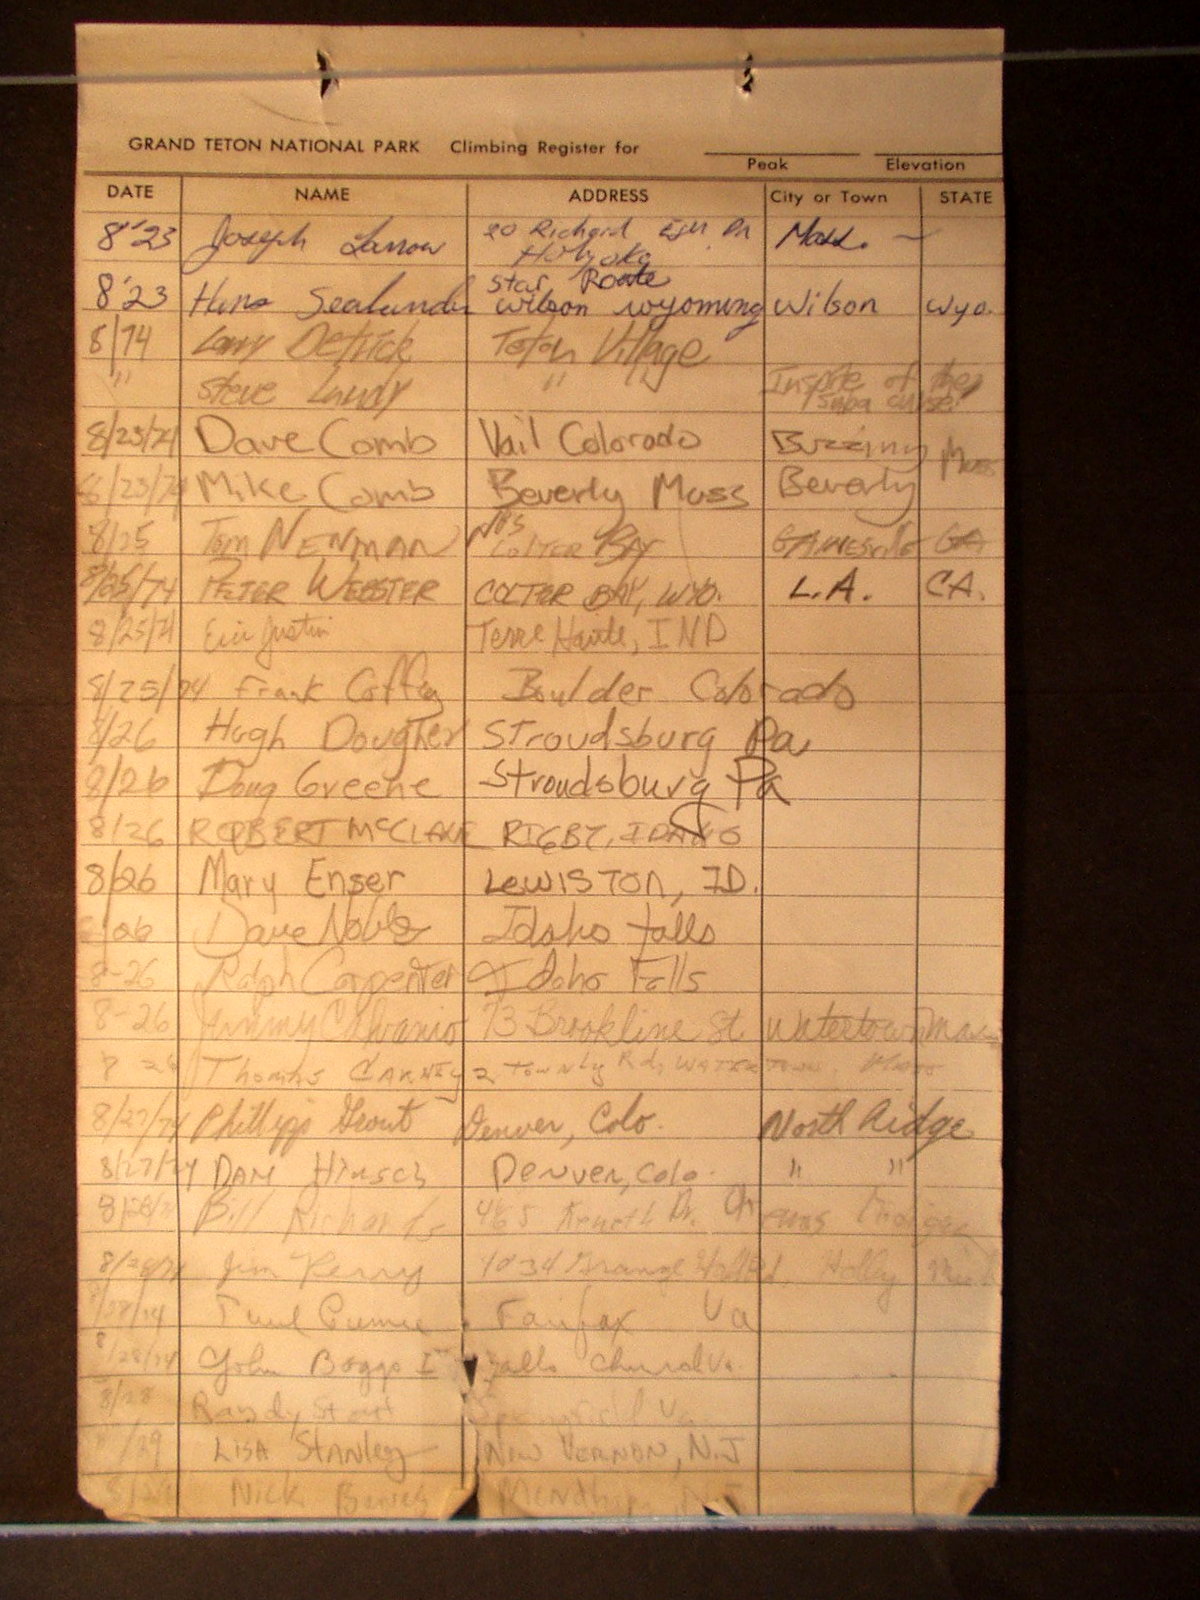 GRAND TETON NATIONAL PARK Climbing Register for
Peak Elevation
DATE NAME ADDRESS City or Town STATE
8'23 Joseph 20 Richard Mass. —
Holyoke
Star Route
8'23 Hans Wilson Wyoming Wilson Wyo.
8/74 Larry Detrick Teton Village
" Steve " " Inspite of the
8/23/74 Dave Comb Vail Colorado
8/23/74 Mike Comb Beverly Mass Beverly Mass
8/25 Tom NEWMAN COLTER BAY GAINESVILLE GA
8/25/74 PETER WEBSTER COLTER BAY, WYO. L.A. CA.
8/25/74 Eric Justin Terre Haute, IND
8/25/74 Frank Coffey Boulder Colorado
8/26 Hugh Dougher Stroudsburg Pa
8/26 Doug Greene Stroudsburg Pa
8/26 ROBERT MCCLANE RIGBY, IDAHO
8/26 Mary Enser LEWISTON, ID.
8/26 Dave Noble Idaho Falls
8-26 Ralph Carpenter Idaho Falls
8-26 Jimmy Calvanio 73 Brookline St. Watertown Mass
Thomas CARNEY 2 Townly Rd, WATERTOWN, Mass
8/27/74 Phillipp Grout Denver, Colo. North Ridge
8/27/74 DAN Hirsch Denver, Colo. " "
Bill Richards 465
Jim Perry 4034 Grange Hall Rd. Holly Mich
Fairfax Va
8/28/74 John Boggs Falls Church Va.
8/28 Randy Springfield Va
/29 LISA STANLEY NEW VERNON, N.J
Nick Mendham, NJ